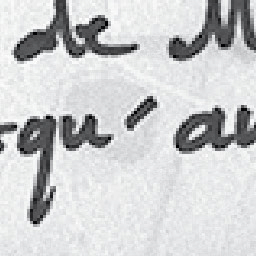 de M
squ'au